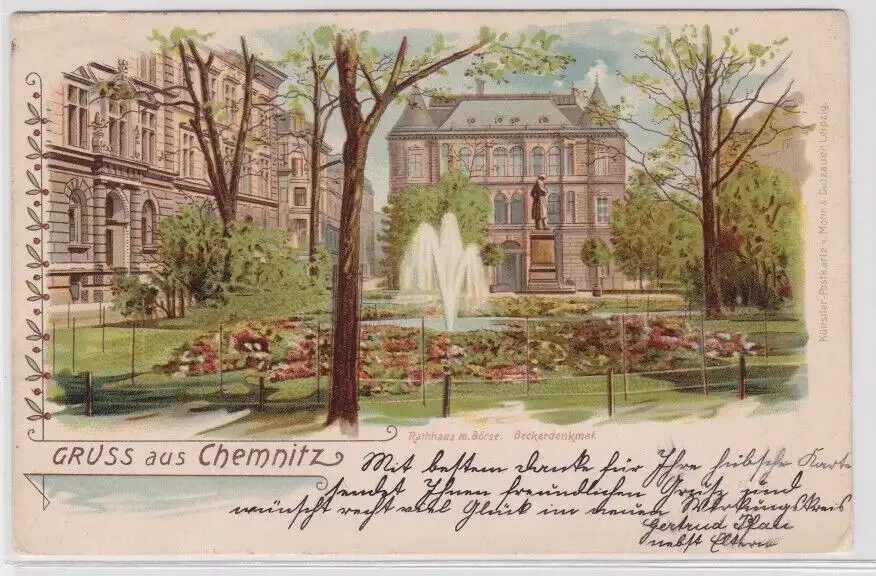 Künstler-Postkarte v. Mohr & Dutzauer Leipzig.
Rathhaus m. Börse. Beckerdenkmal.
GRUSS aus Chemnitz
Mit bestem Danke für Ihre hübsche Karte
sendet Ihnen freundlichen Grüße und
wünscht recht viel Glück im neuen Wirkungskreis
Gertrud
nebst Eltern